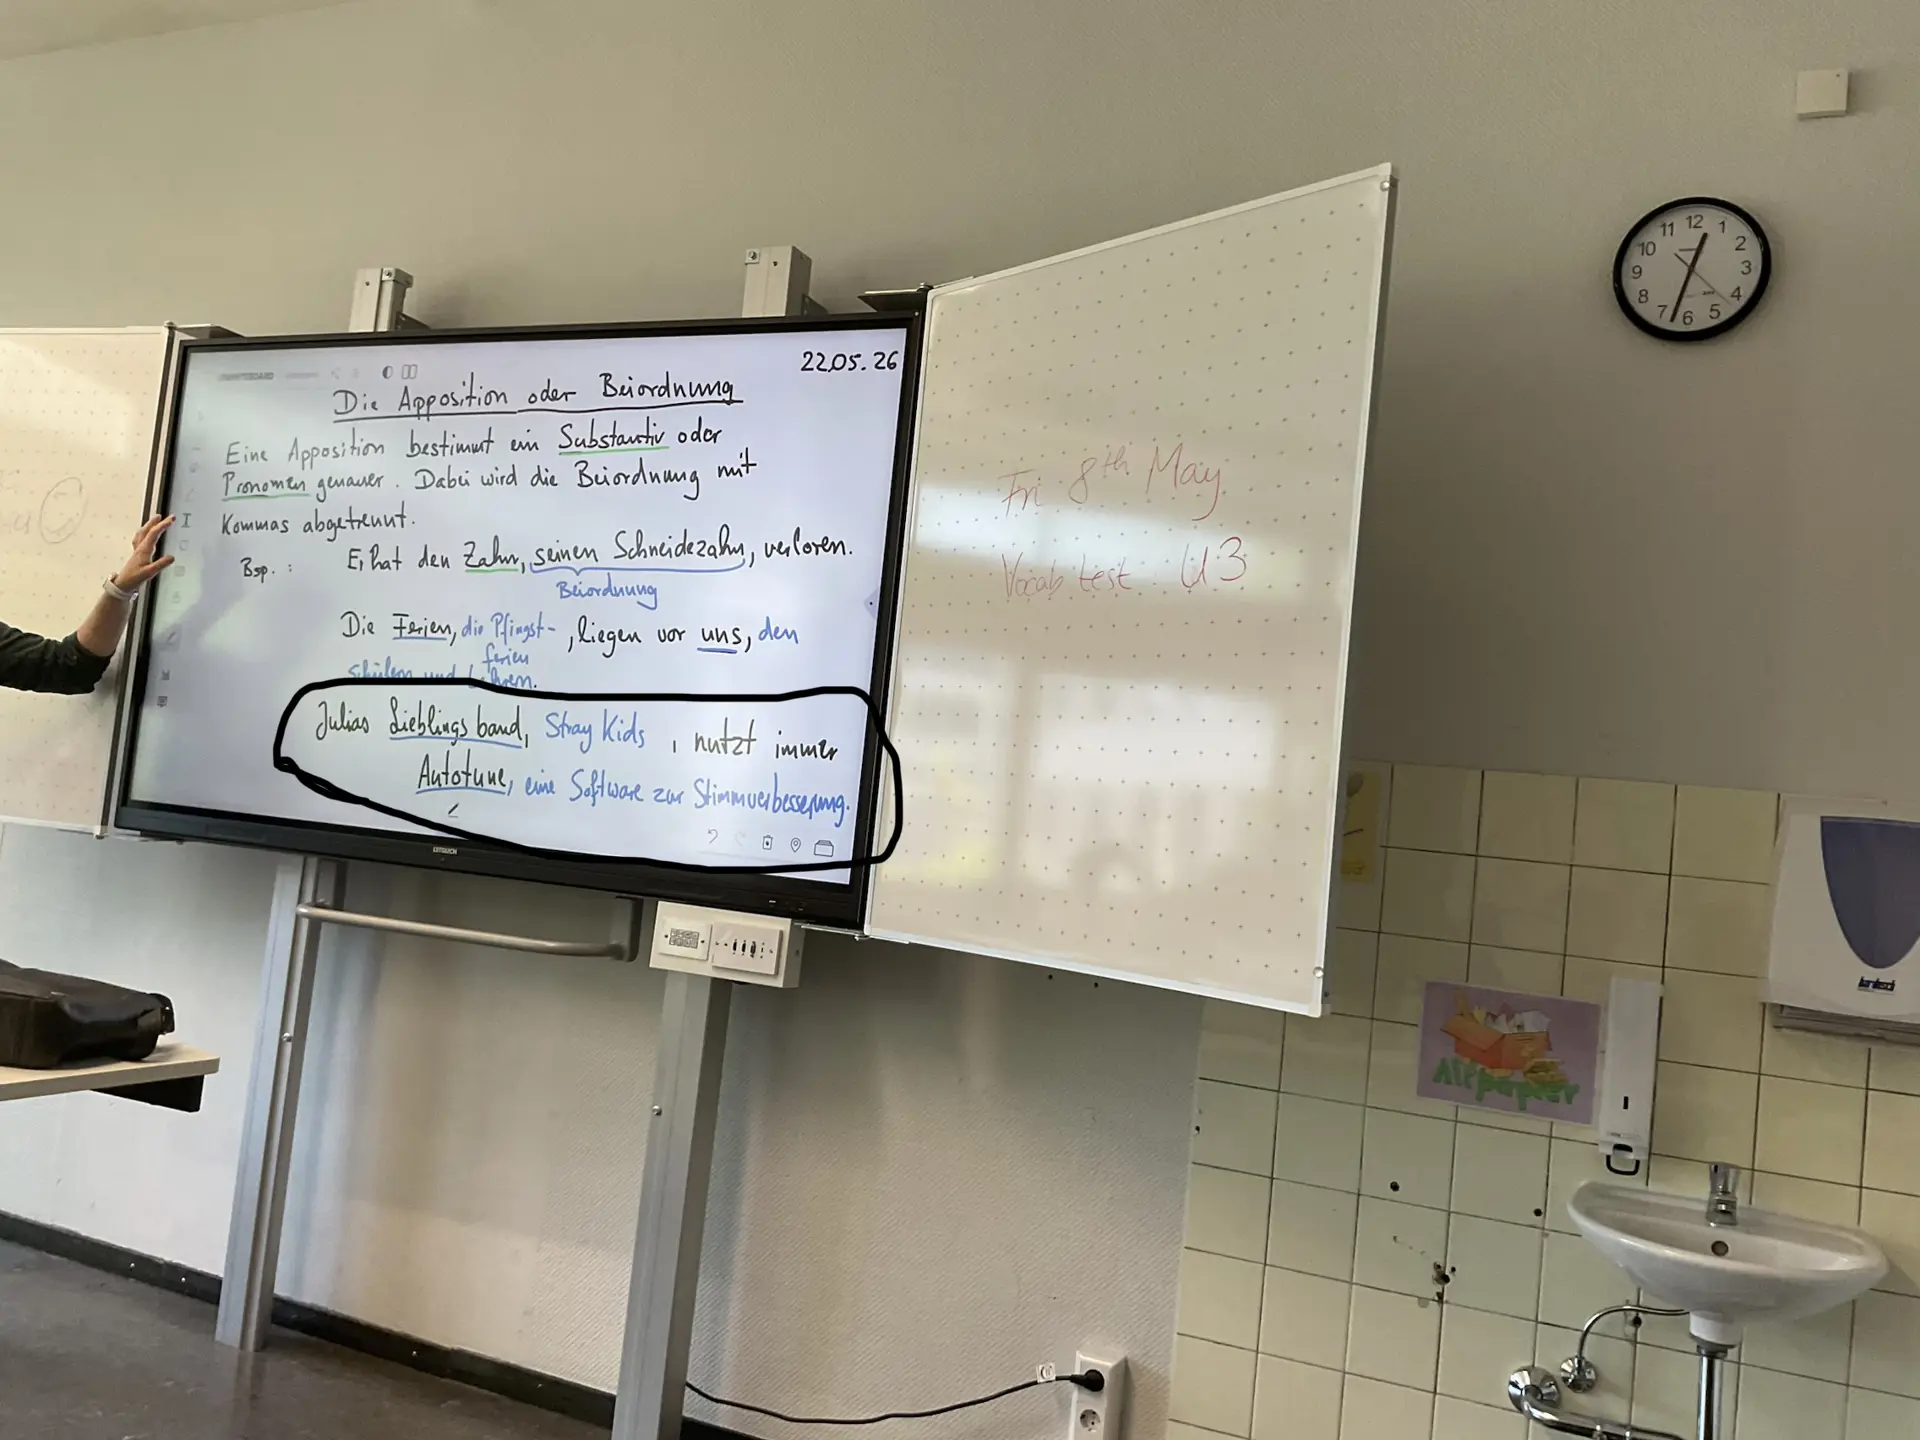 22.05.26
Die Apposition oder Beiordnung
Eine Apposition bestimmt ein Substantiv oder
Pronomen genauer. Dabei wird die Beiordnung mit
Kommas abgetrennt.
Bsp.: Er hat den Zahn, seinen Schneidezahn, verloren.
Beiordnung
Die Ferien, die Pfingst- , liegen vor uns, den
ferien
Schülern und Lehrern.
Julias Lieblingsband, Stray Kids , nutzt immer
Autotune, eine Software zur Stimmverbesserung.
Fri 8th May
Vocab test U3
11 12 1
10 2
9 3
8 4
7 6 5
Altpapier